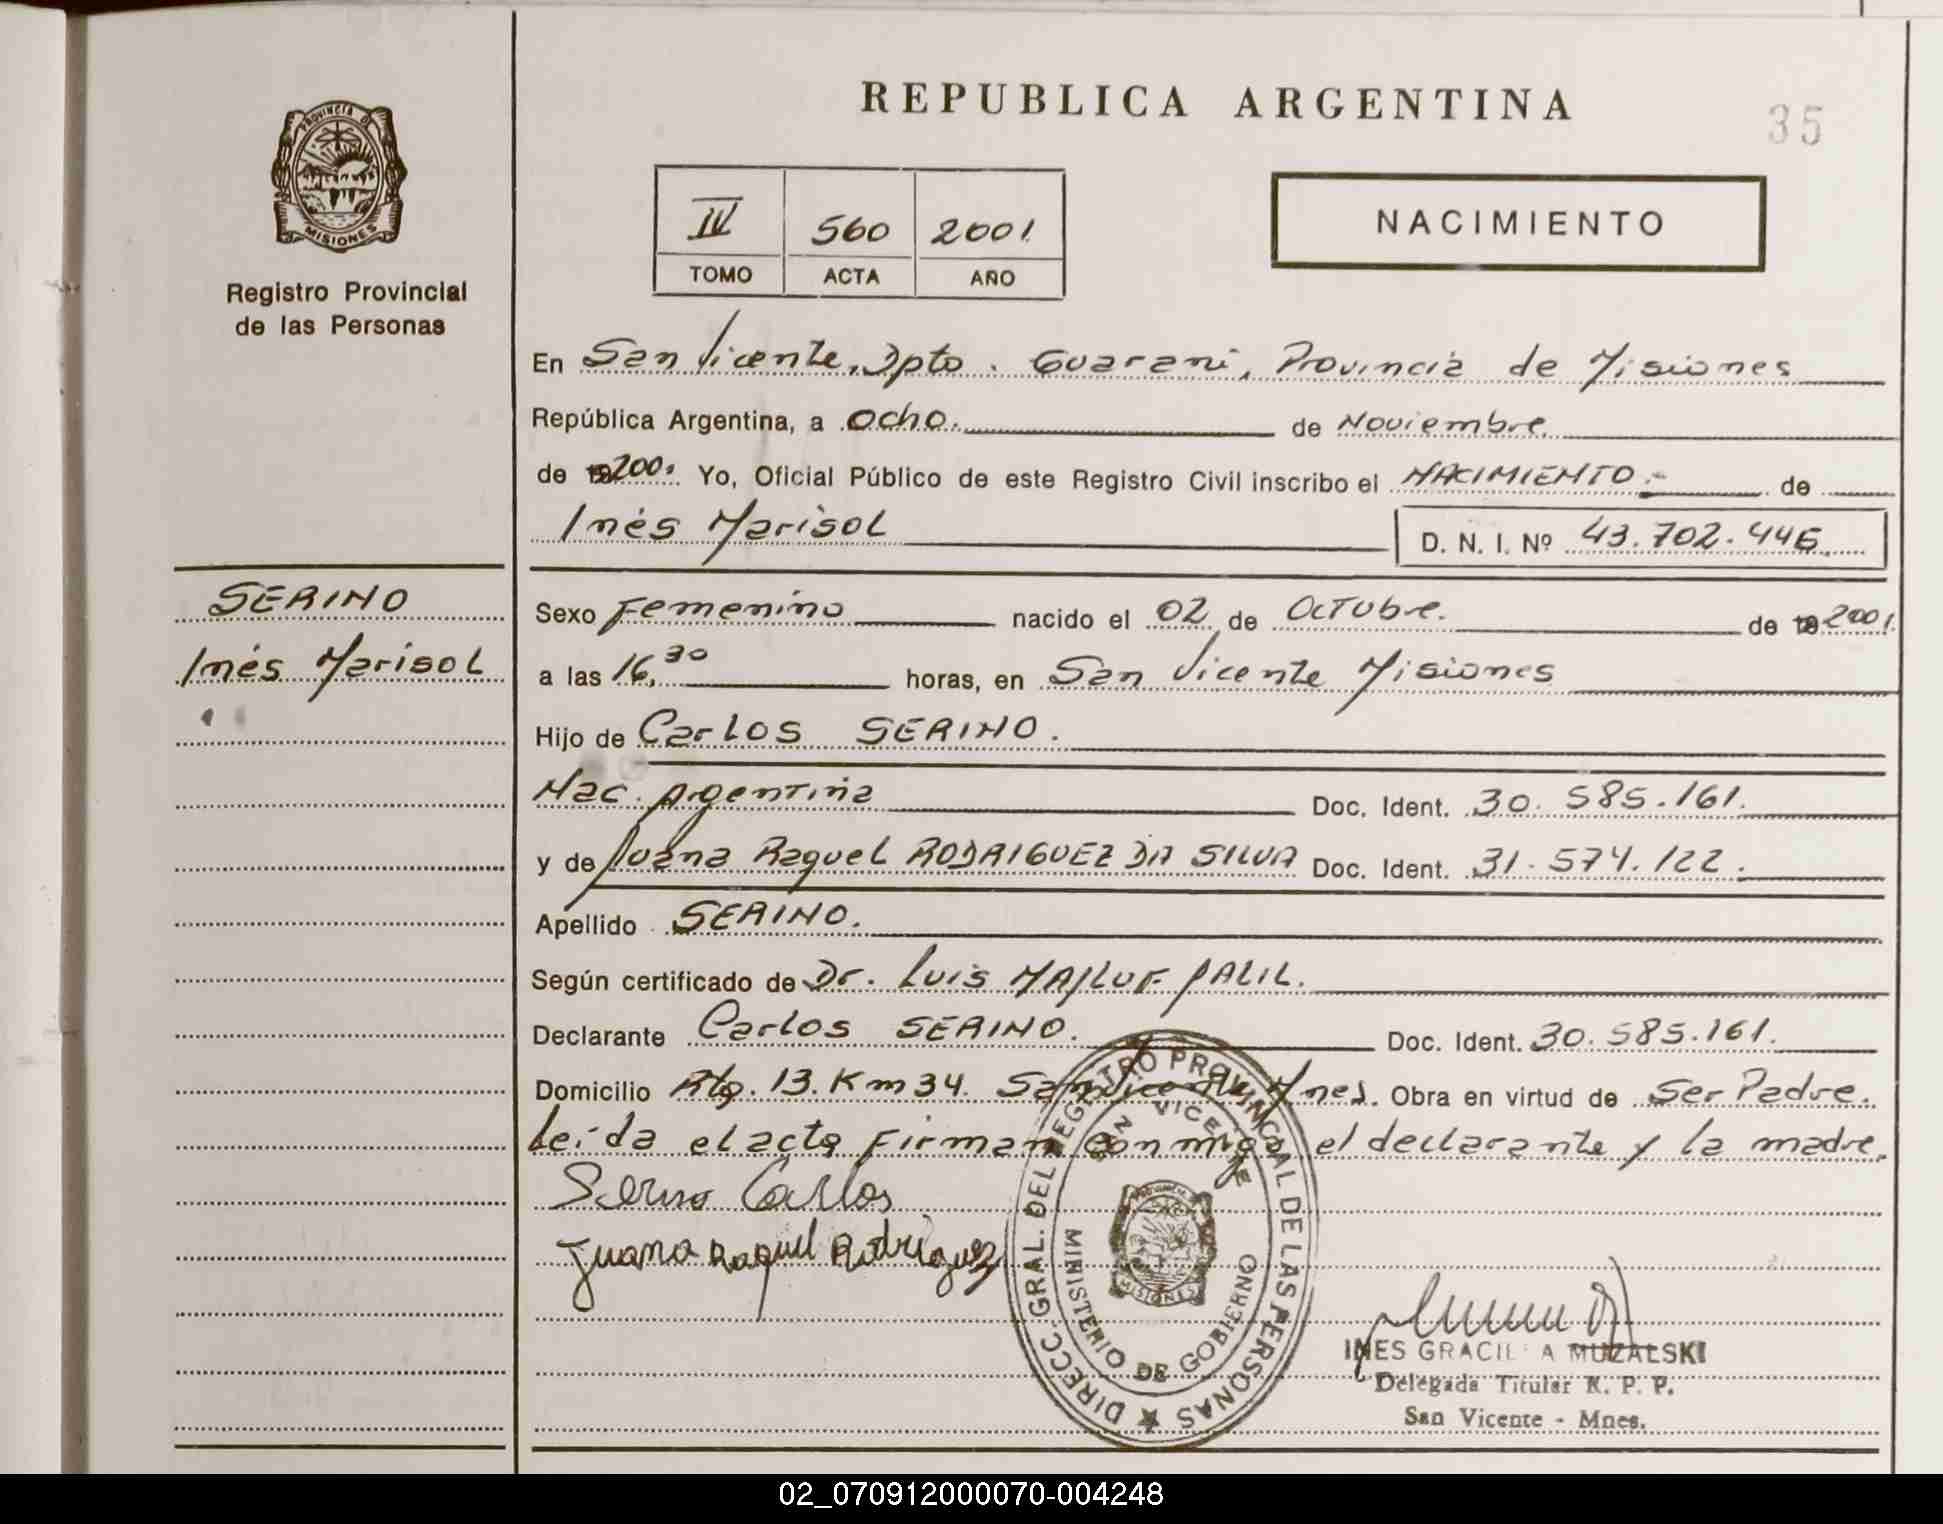 REPUBLICA ARGENTINA
35
PROVINCIA DE
MISIONES
Registro Provincial
de las Personas
IV 560 2001
TOMO ACTA AÑO
NACIMIENTO
En San Vicente, Dpto. Guarani, Provincia de Misiones
República Argentina, a ocho. de Noviembre
de 2001 Yo, Oficial Público de este Registro Civil inscribo el NACIMIENTO.- de
Inés Marisol D. N. I. Nº 43.702.446
SERINO
Inés Marisol
Sexo Femenino nacido el 02 de Octubre. de 2001
a las 16,30 horas, en San Vicente Misiones
Hijo de Carlos SERINO.
Nac. Argentina Doc. Ident. 30.585.161.
y de Juana Raquel RODRIGUEZ DA SILVA Doc. Ident. 31.574.122.
Apellido SERINO.
Según certificado de Dr. Luis MAJLUF JALIL.
Declarante Carlos SERINO. Doc. Ident. 30.585.161.
Domicilio Rta. 13. Km 34. San Vicente Mnes. Obra en virtud de Ser Padre.
Leída el acta Firman conmigo el declarante y la madre.
Serino Carlos
Juana Raquel Rodriguez
DIRECC. GRAL. DEL REGISTRO PROVINCIAL DE LAS PERSONAS
SAN VICENTE
MINISTERIO DE GOBIERNO
MISIONES
INES GRACIELA MUZALSKI
Delegada Titular R. P. P.
San Vicente - Mnes.
02_070912000070-004248